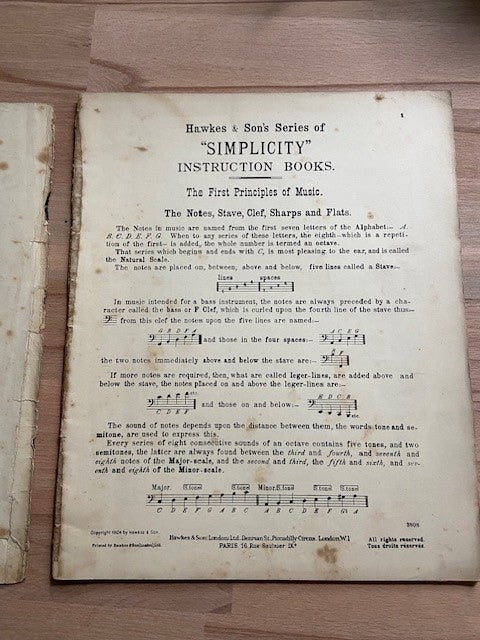 1
Hawkes & Son's Series of
"SIMPLICITY"
INSTRUCTION BOOKS.
The First Principles of Music.
The Notes, Stave, Clef, Sharps and Flats.
The Notes in music are named from the first seven letters of the Alphabet:— A.
B. C. D. E. F. G. When to any series of these letters, the eighth—which is a repeti-
tion of the first— is added, the whole number is termed an octave.
That series which begins and ends with C, is most pleasing to the ear, and is called
the Natural Scale.
The notes are placed on, between; above and below, five lines called a Stave:—
lines spaces
In music intended for a bass instrument, the notes are always preceded by a cha-
racter called the bass or F Clef, which is curled upon the fourth line of the stave thus—
from this clef the notes upon the five lines are named:—
G B D F A and those in the four spaces:— A C E G
the two notes immediately above and below the stave are:—
If more notes are required, then, what are called leger-lines, are added above and
below the stave, the notes placed on and above the leger-lines are:—
C D E F etc. and those on and below:— E D C B etc.
The sound of notes depends upon the distance between them, the words tone and se-
mitone, are used to express this.
Every series of eight consecutive sounds of an octave contains five tones, and two
semitones, the latter are always found between the third and fourth, and seventh and
eighth notes of the Major-scale, and the second and third, the fifth and sixth, and sev-
enth and eighth of the Minor-scale.
Major. S.tone S.tone Minor. S.tone S.tone S.tone
C D E F G A B C A B C D E F G♯ A
3808
Copyright 1924 by Hawkes & Son
Hawkes & Son (London) Ltd. Denman St. Piccadilly Circus. London. W.1
All rights reserved.
PARIS. 16, Rue Saulnier IXe
Tous droits réservés.